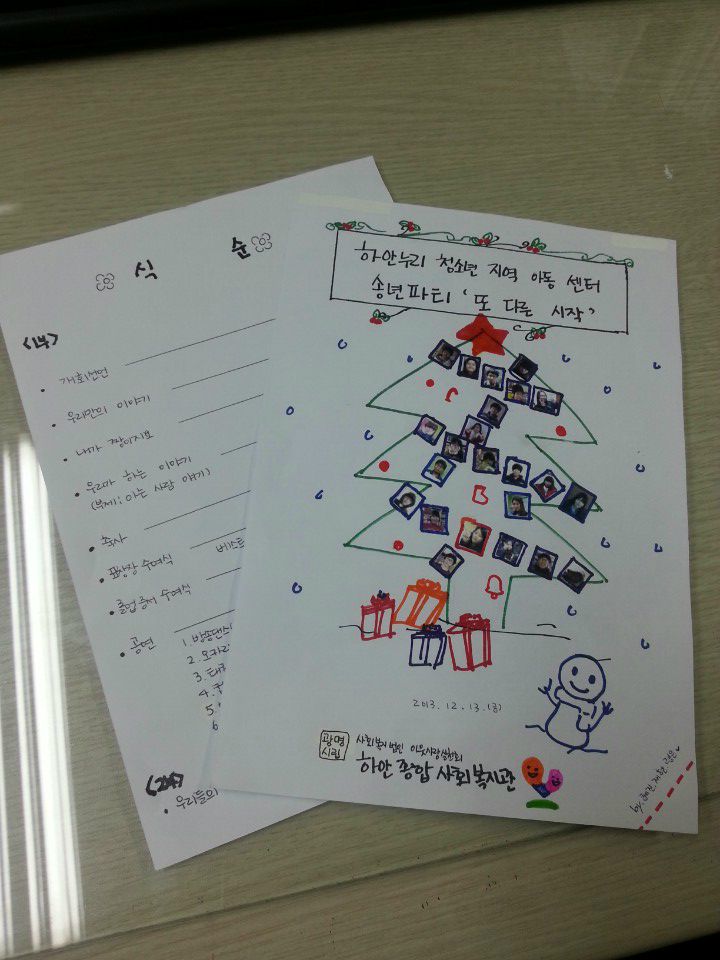 식 순
<1부>
• 개회선언
• 우리만의 이야기
• 내가 짱이지요
• 우리가 하는 이야기
(부제: 아는 사람 얘기)
• 축사
• 표창장 수여식 베스트
• 졸업증서 수여식
• 공연 1. 방송댄스
2. 오카리
3. 태권
4.
5.
6
<2부>
• 우리들의
하안누리 청소년 지역 아동 센터
송년파티 '또 다른 시작'
2013. 12. 13. (금)
광명
시립
사회복지법인 이웃사랑실천회
하안종합사회복지관
by.